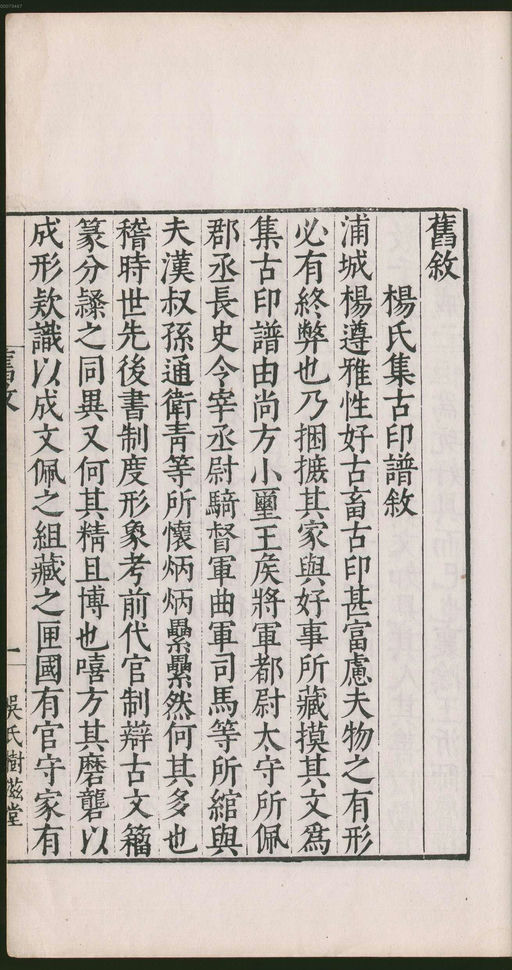 舊敘
楊氏集古印譜敘
浦城楊遵雅性好古畜古印甚富慮夫物之有形
必有終弊也乃捆摭其家與好事所藏摸其文爲
集古印譜由尚方小璽王矦將軍都尉太守所佩
郡丞長史令宰丞尉騎督軍曲軍司馬等所綰與
夫漢叔孫通衛青等所懷炳炳纍纍然何其多也
稽時世先後書制度形象考前代官制辯古文籀
篆分隸之同異又何其精且博也嘻方其磨礱以
成形欵識以成文佩之組藏之匣國有官守家有
舊敘
一
吳氏樹滋堂
00073447